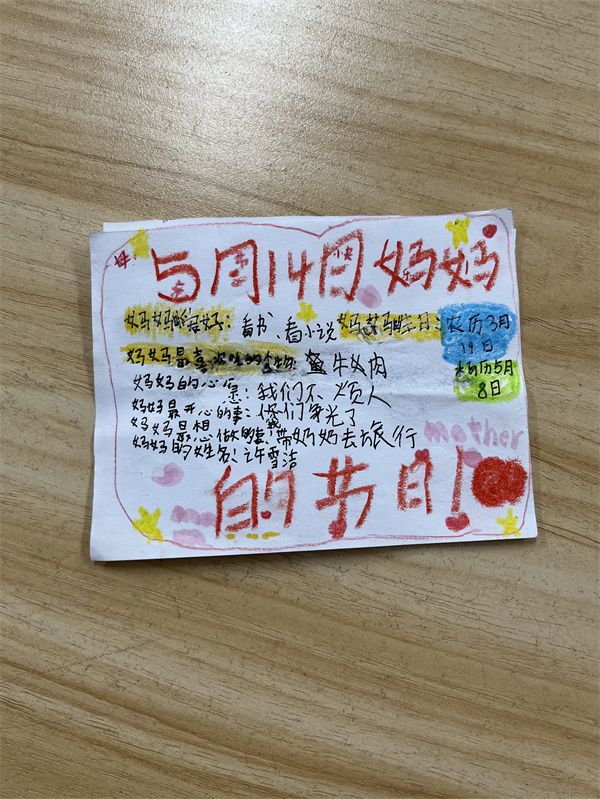 5月14日 妈妈
妈妈的爱好：看书、看小说 妈妈的生日：农历3月
19日
妈妈最喜欢吃的食物： 牛奶肉
公历5月
8日
妈妈的心愿：我们不烦人
妈妈最开心的事：你们争光了
妈妈最想做的事：带奶奶去旅行
妈妈的姓名：许雪洁
mother
的节日！